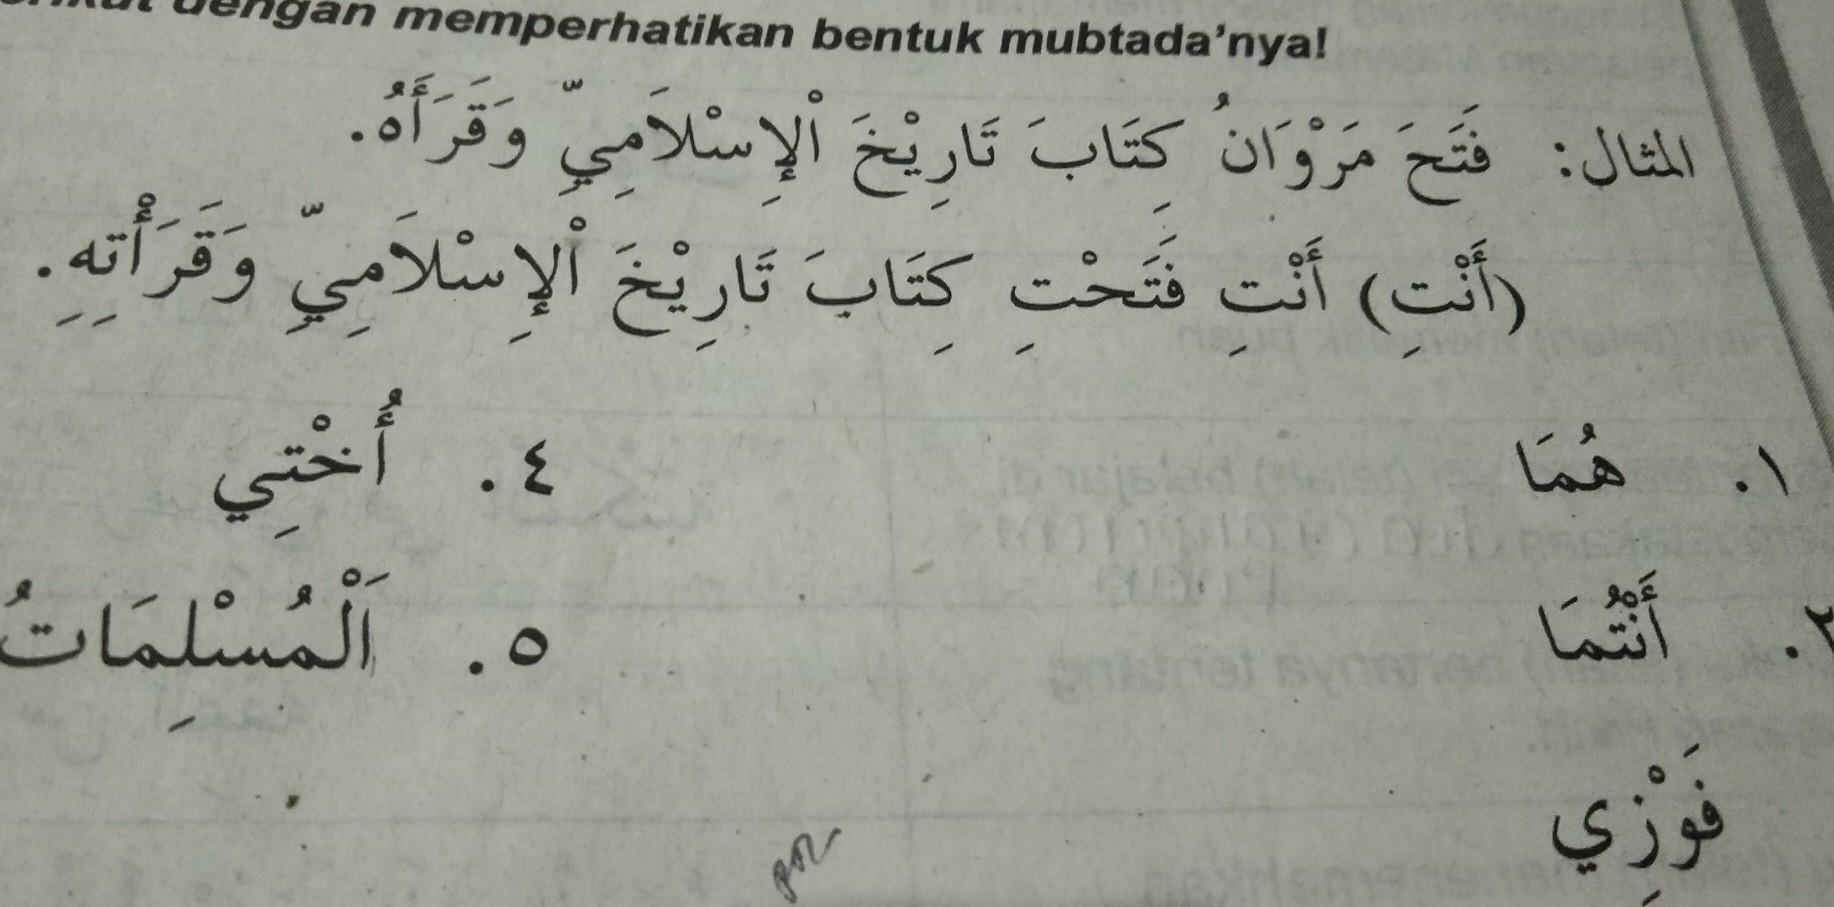 dengan memperhatikan bentuk mubtada'nya!
المثال: فَتَحَ مَرْوَانُ كِتَابَ تَارِيْخَ الْإِسْلَامِيِّ وَقَرَأَهُ.
(أَنْتِ) أَنْتِ فَتَحْتِ كِتَابَ تَارِيْخَ الْإِسْلَامِيِّ وَقَرَأْتِهِ.
١. هُمَا
٢. أَنْتُمَا
فَوْزِي
٤. أُخْتِي
٥. اَلْمُسْلِمَاتُ